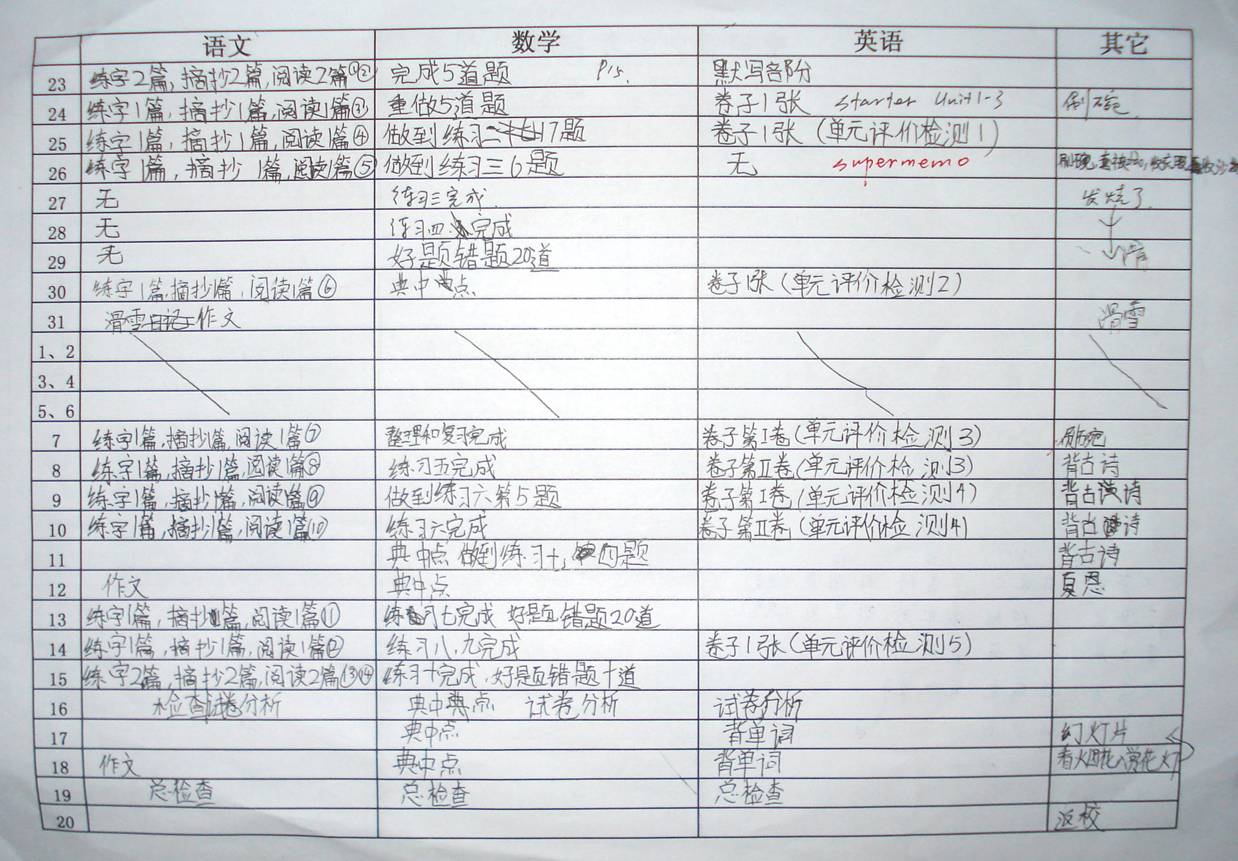 语文 数学 英语 其它
23 练字2篇,摘抄2篇,阅读2篇①② 完成5道题 P15. 默写部分
24 练字1篇,摘抄1篇,阅读1篇③ 重做5道题 卷子1张 Starter Unit1-3 刷碗
25 练字1篇,摘抄1篇,阅读1篇④ 做到练习二 17题 卷子1张(单元评价检测1)
26 练字1篇,摘抄1篇,阅读1篇⑤ 做到练习三6题 无 supermemo 刷碗
27 无 练习三完成. 发烧了
28 无 练习四完成
29 无 好题错题20道
30 练字1篇,摘抄1篇,阅读1篇⑥ 典中点 卷子1张(单元评价检测2)
31 滑雪日记作文 滑雪
1、2
3、4
5、6
7 练字1篇,摘抄1篇,阅读1篇⑦ 整理和复习完成 卷子第I卷(单元评价检测3) 刷碗
8 练字1篇,摘抄1篇,阅读1篇⑧ 练习五完成 卷子第II卷(单元评价检测3) 背古诗
9 练字1篇,摘抄1篇,阅读1篇⑨ 做到练习六第5题 卷子第I卷(单元评价检测4) 背古诗
10 练字1篇,摘抄1篇,阅读1篇⑩ 练习六完成 卷子第II卷(单元评价检测4) 背古诗
11 典中点 做到练习七, 四题 背古诗
12 作文 典中点
13 练字1篇,摘抄1篇,阅读1篇⑪ 练习七完成 好题错题20道
14 练字1篇,摘抄1篇,阅读1篇⑫ 练习八,九完成 卷子1张(单元评价检测5)
15 练字2篇,摘抄2篇,阅读2篇⑬⑭ 练习十完成,好题错题十道
16 检查试卷分析 典中点 试卷分析 试卷分析
17 典中点 背单词 幻灯片
18 作文 典中点 背单词 看火田花、赏花灯
19 总检查 总检查 总检查
20 返校